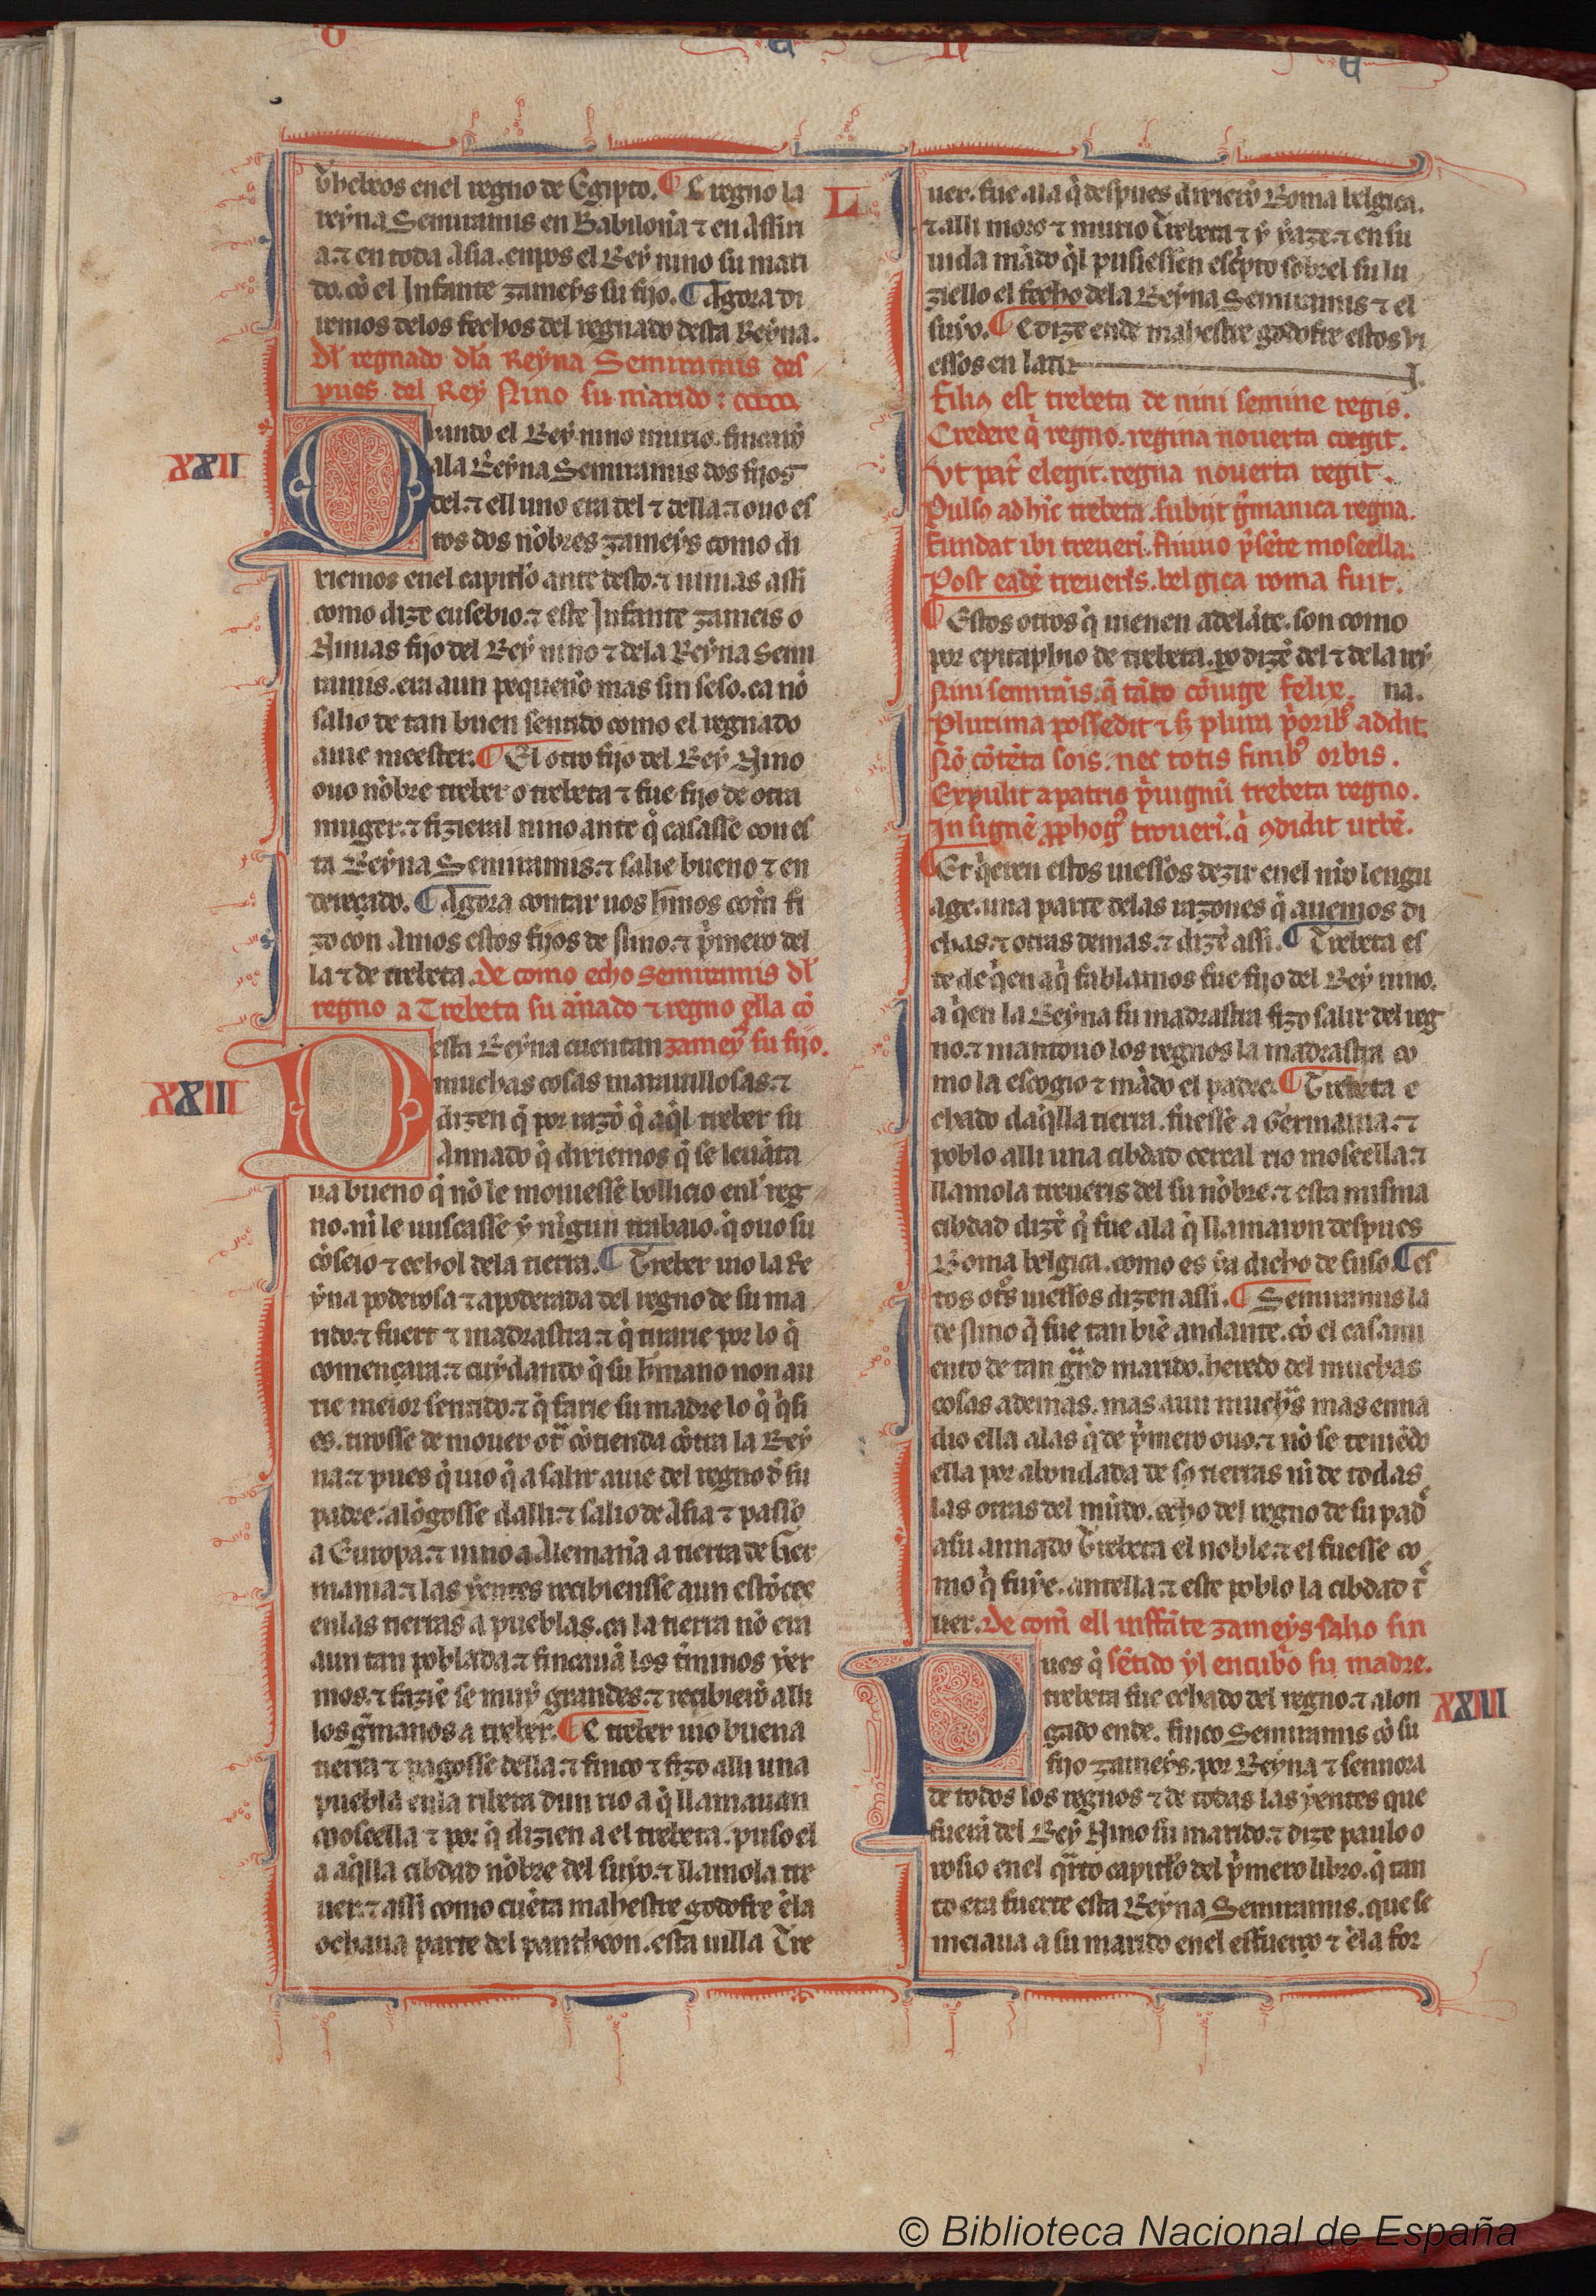 d̃ hebreos enel regno de Egipto. ¶ E regno la
reẏna Semiramis en Babilon̄ia ⁊ en Assiri
a.⁊ en toda Asia. enpos el Reẏ nino su mari
do. cō el Infante zameẏs su fijo. ¶ Agora di
remos delos fechos del regnado desta Reẏna.
Dl̃ regnado dl̃a Reẏna Semiramis des
pues del Reẏ Nino su marido:
XXII
Quando el Reẏ nino murio. fincarō
ala Reẏna Semiramis dos fijos
del.⁊ ell uno era del ⁊ della.⁊ ouo es
tos dos nōbres zameẏs como di
xiemos enel capitl̃o ante desto.⁊ ninias assi
como dize eusebio.⁊ este Infante zameis o
Ninias fijo del Reẏ nino ⁊ dela Reẏna Semi
ramis. era aun pequen̄o mas sin seso. ca nō
salio de tan buen sentido como el regnado
auie meester. ¶ El otro fijo del Reẏ Nino
ouo nōbre treber o trebeta ⁊ fue fijo de otra
muger.⁊ fizieral nino ante q̄ casasse con es
ta Reẏna Semiramis.⁊ salie bueno ⁊ en
dereçado. ¶ Agora contar uos hemos com̄ fi
zo con Amos estos fijos de Nino.⁊ p̄mero del
la ⁊ de trebeta. De como echo Semiramis dl̃
regno a Trebeta su ānado ⁊ regno ella cō
XXIII
Desta Reẏna cuentan zameẏ su fijo.
muchas cosas marauillosas.⁊
dizen q̄ por razō q̄ aq̄l treber su
Annado q̄ dixiemos q̄ se leuāta
ua bueno q̄ nō le mouiesse bollicio enl̃ reg
no. nī le uuscasse ẏ nīgun trabaio. q̄ ouo su
cōseio ⁊ echol dela tierra. ¶ Treber uio la Re
ẏna poderosa ⁊ apoderada del regno de su ma
rido.⁊ fuert ⁊ madrastra.⁊ q̄ tirarie por lo q̄
començara.⁊ cuẏdando q̄ su hr̃mano non au
rie meior sentido.⁊ q̄ farie su madre lo q̄ q̄si
es. tirosse de mouer otr̃ cōtienda cōtra la Reẏ
na.⁊ pues q̄ uio q̄ a salir auie del regno d̃ su
padre. alōgosse dalli.⁊ salio de Asia ⁊ passo
a Europa.⁊ uino a Alemān̄a a tierra de Ger
mania.⁊ las ẏentes recibiensse aun estōces
en las tierras a pueblas. ca la tierra nō era
aun tan poblada.⁊ fincauā los t̄minos ẏer
mos.⁊ faziē se muẏ grandes.⁊ recibierō alli
los gr̃manos a treber. ¶ E treber uio buena
tierra ⁊ pagosse della.⁊ finco ⁊ fizo alli una
puebla en la ribera dun rio a q̄ llamauan
Moseella ⁊ por q̄ dizien a el trebeta. puso el
a aq̄lla cibdad nōbre del suẏo.⁊ llamola tre
uer.⁊ assi como cuēta mahestre godofre ēla
ochaua parte del pantheon. esta uilla Tre
L
uer. fue ala q̄ despues dixierō Roma belgica.
⁊ alli moro ⁊ murio Trebeta ⁊ ẏ ẏaze.⁊ en su
uida mādo q̄l pusiessen esc̄pto sobrel su lu
ziello el fecho dela Reẏna Semiramis ⁊ el
suẏo. ¶ E dize ende mahestre godofre estos ui
essos en latin
Filiꝰ est trebeta de nini semine regis.
Credere q̄ regno. regina nouerta coegit.
Vt pat̄ elegit. regna nouerta regit.
Pulsꝰ ad hīc trebeta. subijt gr̃manica regna.
Fundat ibi treueri. fluuio p̄sēte moseella.
Post eadē treueris. belgica roma fuit.
¶ Estos otros q̄ uienen adelāte. son como
por epitaphio de trebeta. ꝑo dizē del ⁊ dela reẏ
Nini semiramis. q̄ tāto cōiuge felix. na.
Plurima possedit ⁊ sꝫ plura p̄oribꝰ addit.
Nō cōtēta sois. nec totis finibꝰ orbis.
Expulit a patris p̄uignū trebeta regno.
Insignē ꝓphogꝰ treueri. q̄ ꝯdidit urbē.
¶ Et q̄eren estos uiessos dezir enel nr̃o lengu
age. una parte delas razones q̄ auemos di
chas.⁊ otras demas.⁊ dizē assi. ¶ Trebeta es
te de q̄en aq̄ fablamos fue fijo del Reẏ nino.
a q̄en la Reẏna su madrastra fizo salir del reg
no.⁊ mantouo los regnos la madrastra co
mo la escogio ⁊ mādo el padre. ¶ Trebeta e
chado daq̄lla tierra. fuesse a Germania.⁊
poblo alli una cibdad cercal rio moseella.⁊
llamola treueris del su nōbre.⁊ esta misma
cibdad dizē q̄ fue ala q̄ llamaron despues
Roma belgica. como es ẏa dicho de suso. ¶ es
tos otr̃s uiessos dizen assi. ¶ Semiramis la
de Nino q̄ fue tan biē andante. cō el casami
ento de tan grãd marido. heredo del muchas
cosas ademas. mas aun muchãs mas enna
dio ella alas q̄ de p̄mero ouo.⁊ nō se teniēdo
ella por abondada de sꝰ tierras nī de todas
las otras del mūdo. echo del regno de su padr̃
a su annado Trebeta el noble.⁊ el fuesse co
mo q̄ fuẏe. antella.⁊ este poblo la cibdad tr̃
uer. De com̄ ell inffāte zameẏs salio sin
XXIIII
Pues q̄ sētido ẏl encubrio su madre.
trebeta fue echado del regno.⁊ alon
gado ende. finco Semiramis cō su
fijo zameẏs. por Reẏna ⁊ sennora
de todos los regnos ⁊ de todas las ẏentes que
fuerā del Reẏ Nino su marido.⁊ dize paulo o
rosio enel qr̃to capitl̃o del p̄mero libro. q̄ tan
to era fuerte esta Reẏna Semiramis. que se
meiaua a su marido enel esfuerço ⁊ ēla for
© Biblioteca Nacional de España